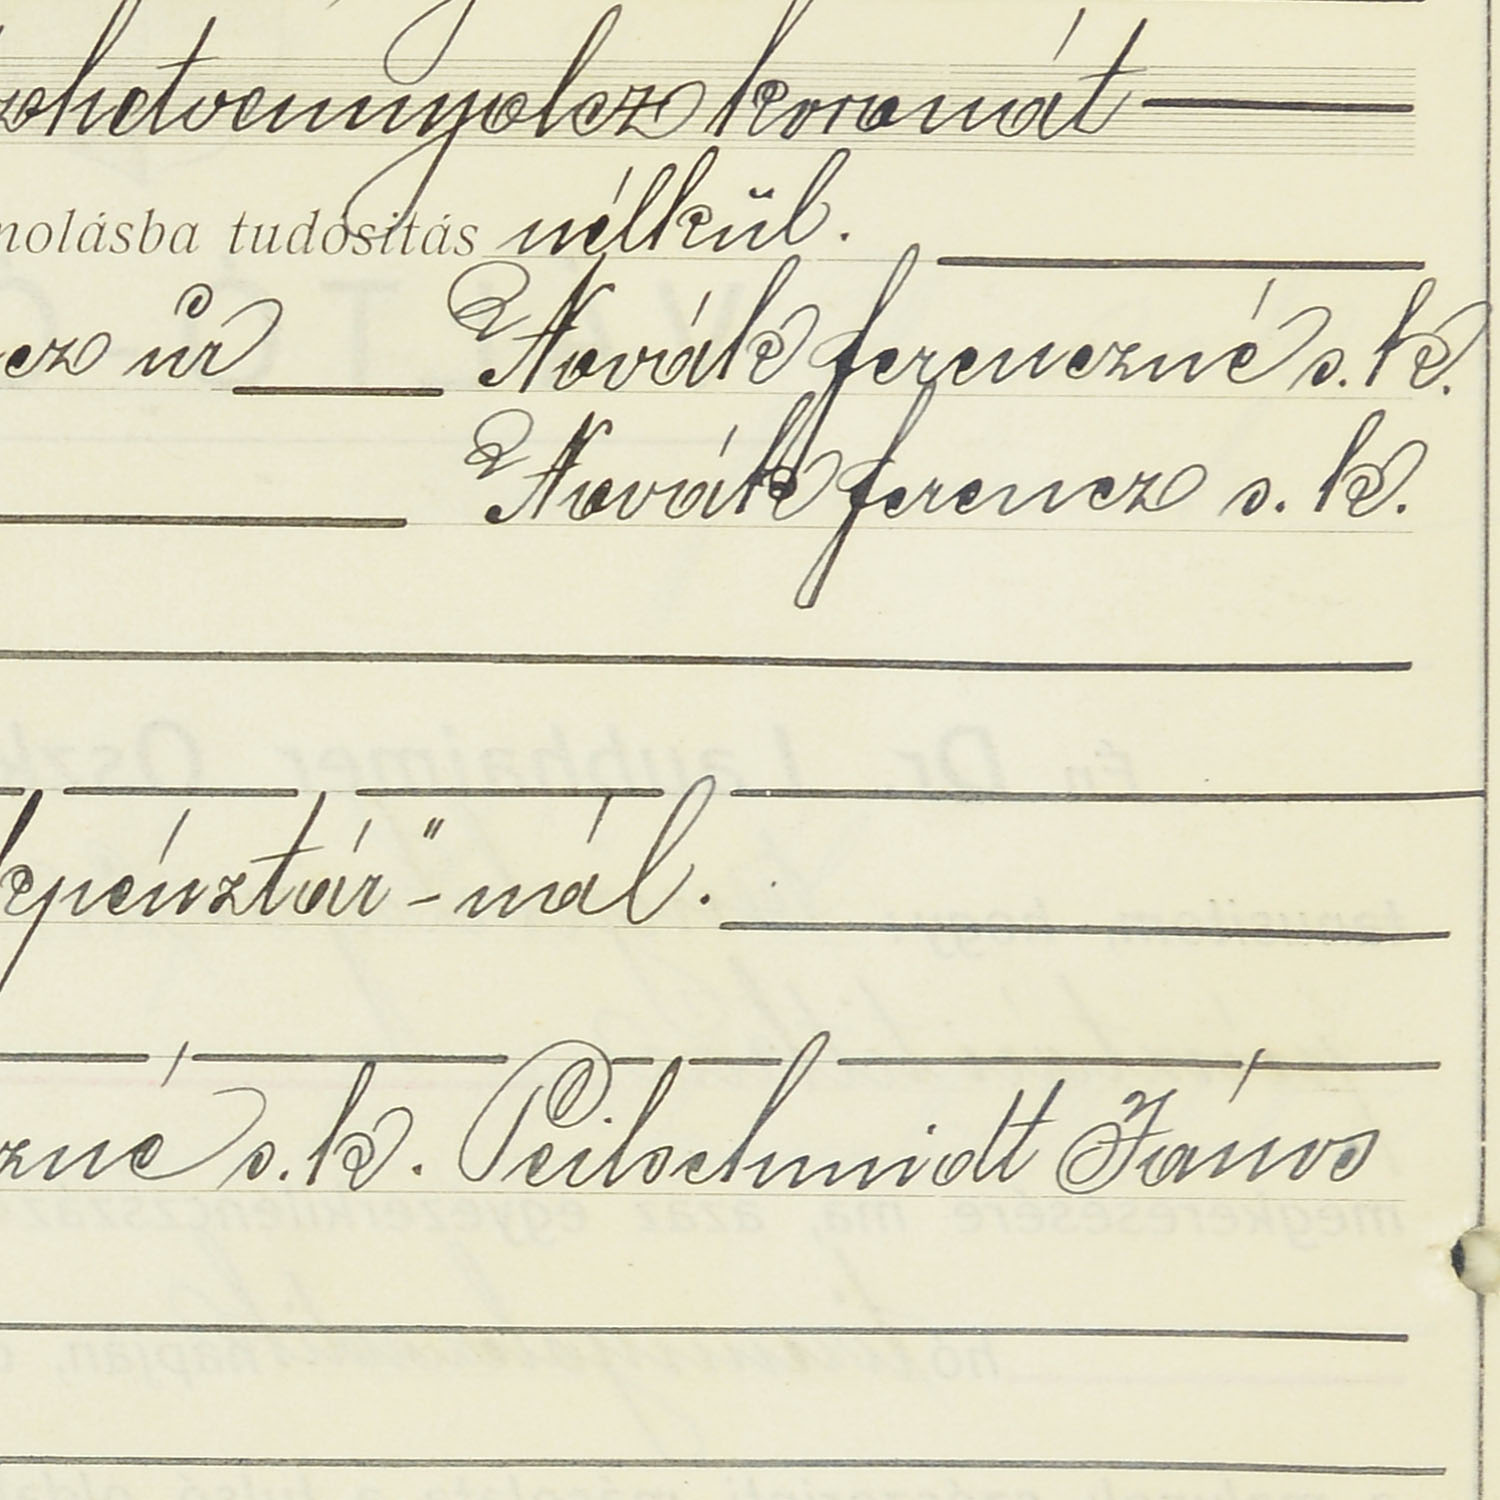 hetvennyolcz koronát
tudositás nélkül.
úr Novák ferenczné s. k.
Novák ferencz s. k.
pénztár"-nál.
s. k. Peilschmidt János